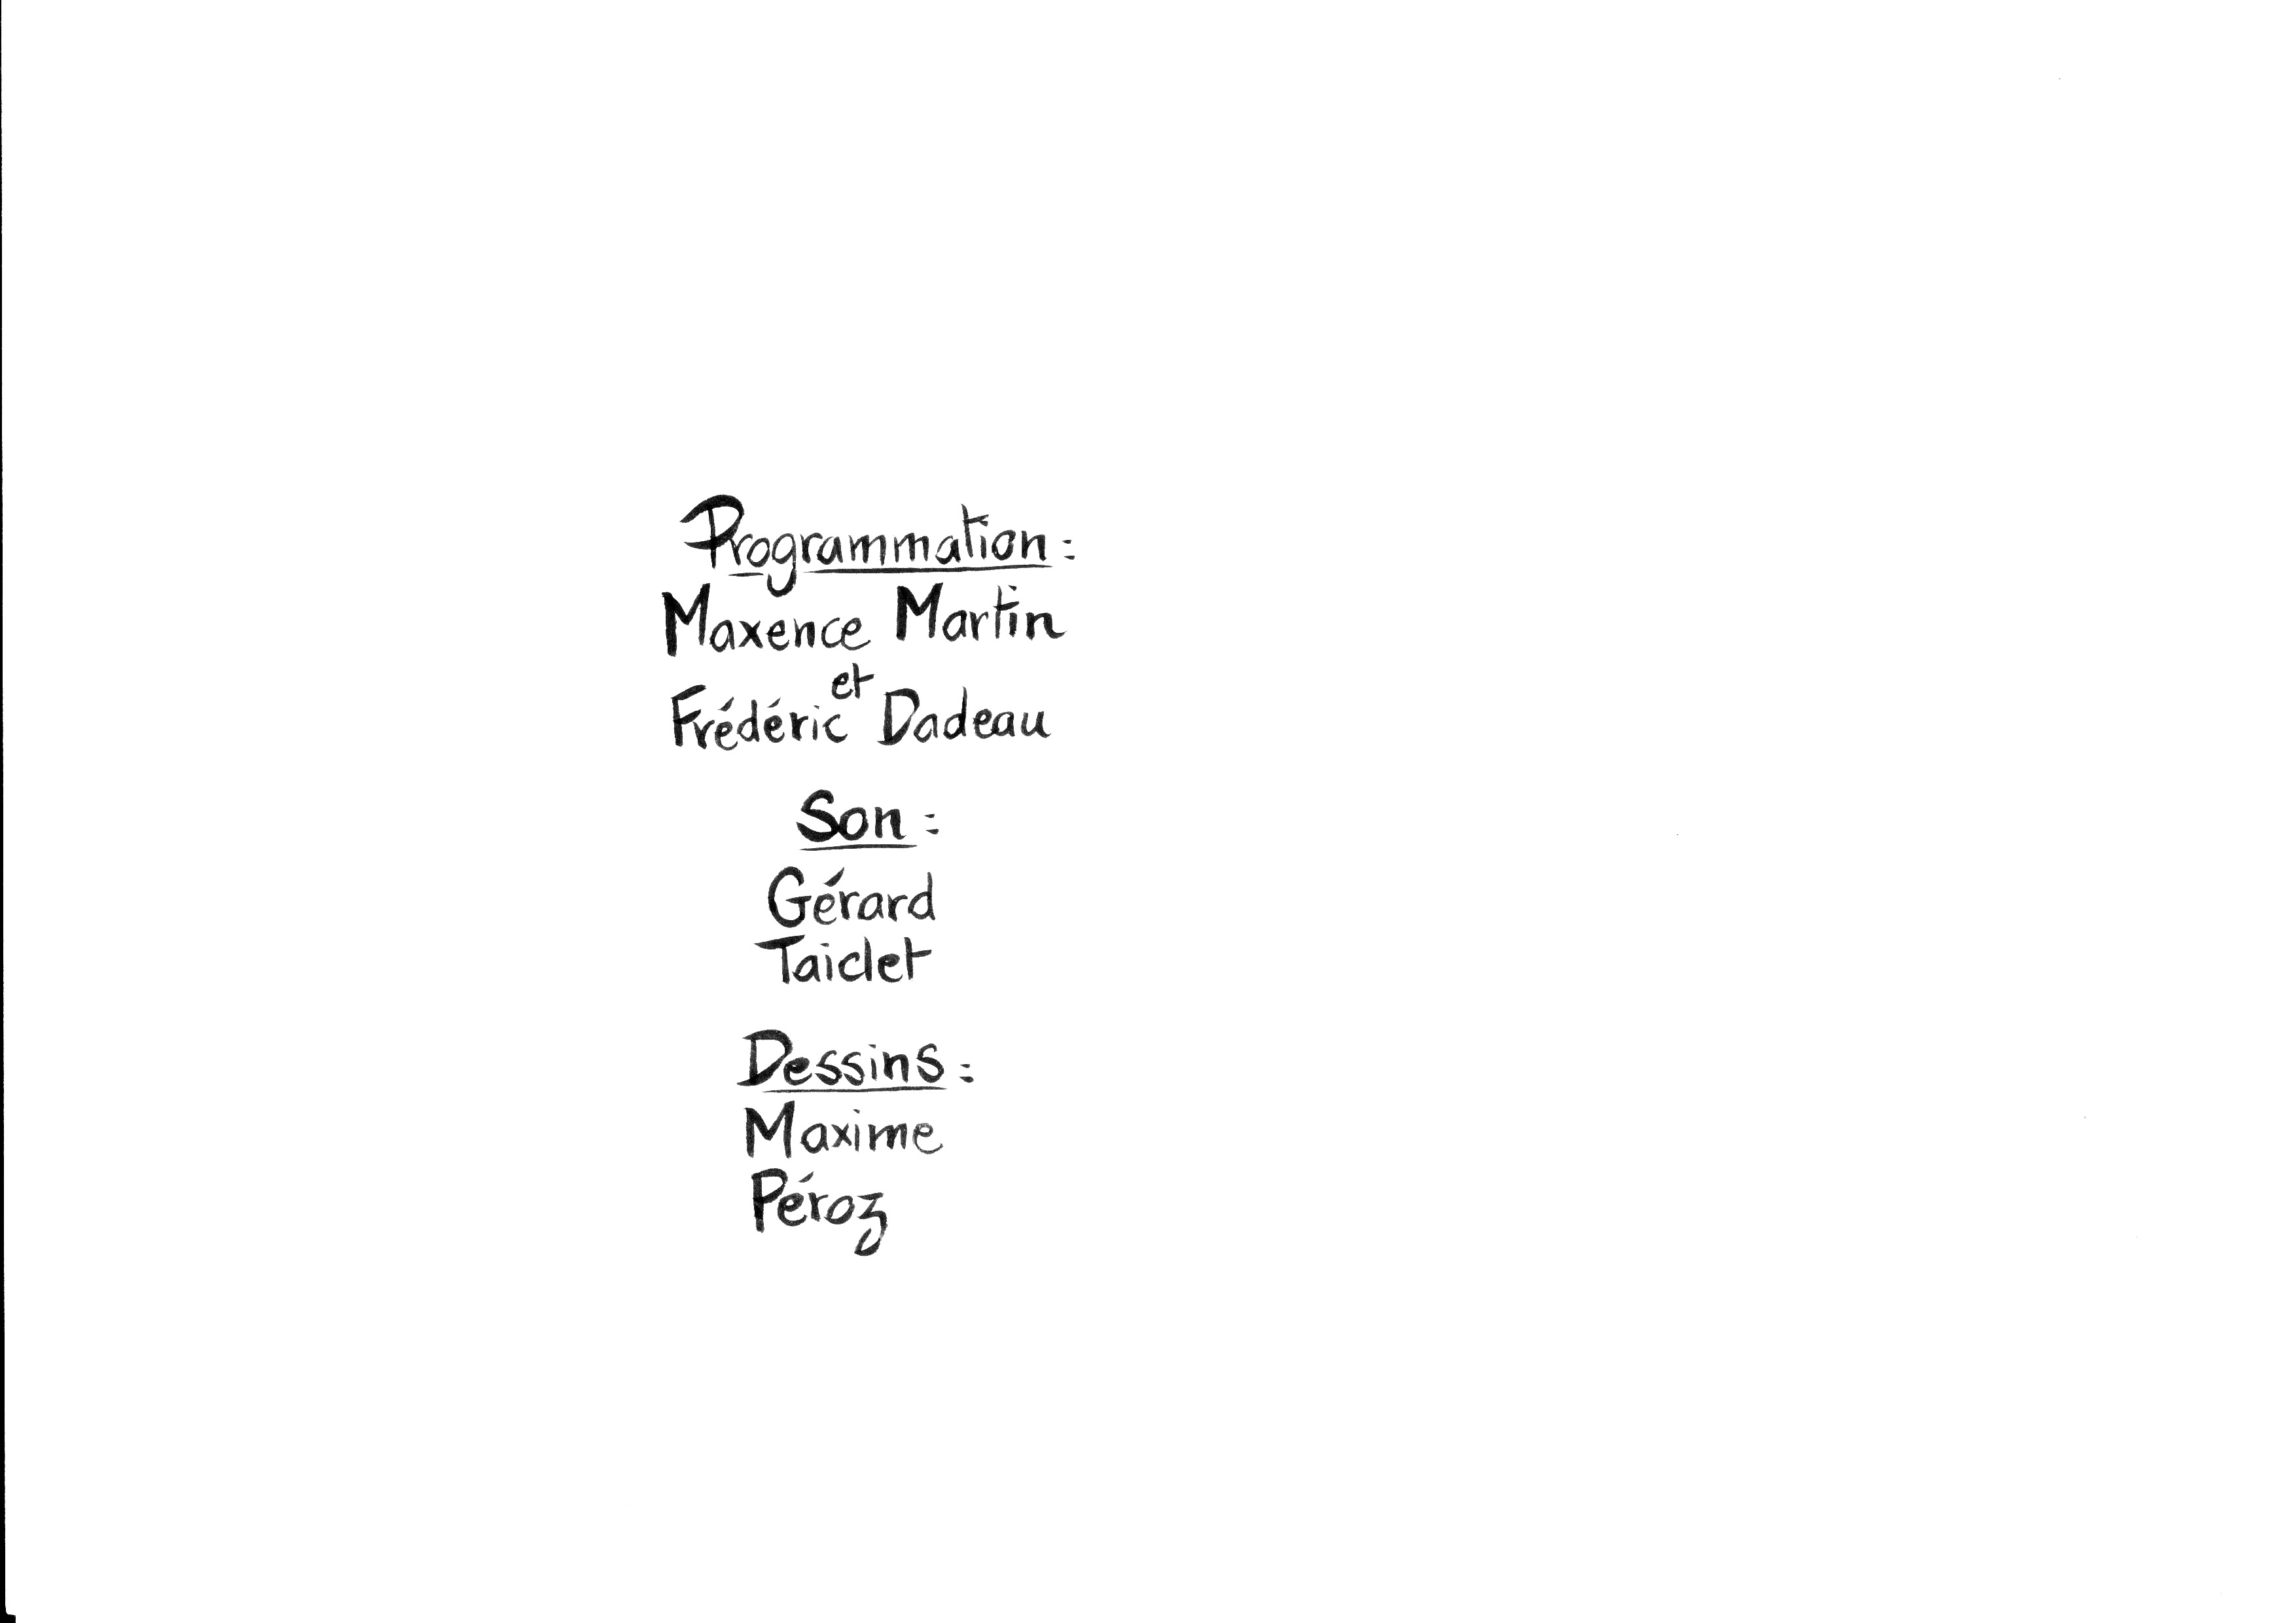 Programmation :
Maxence Martin
et
Frédéric Dadeau
Son :
Gérard
Taiclet
Dessins :
Maxime
Péroz